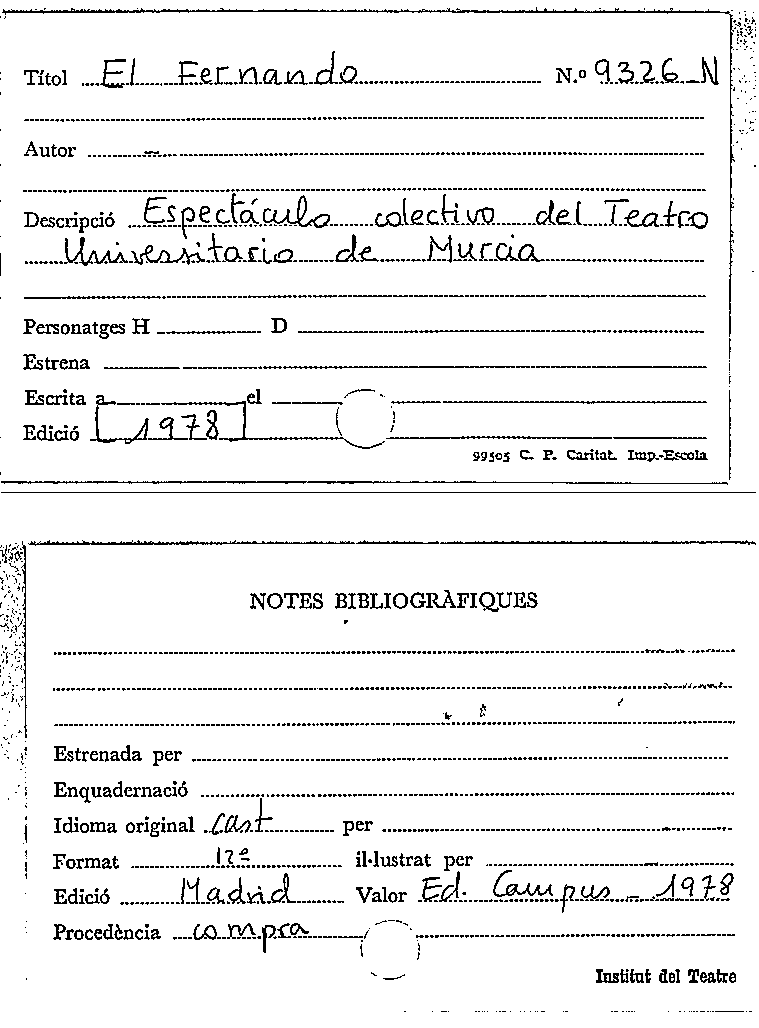 Títol El Fernando N.º 9326-N
Autor —
Descripció Espectáculo colectivo del Teatro
Universitario de Murcia
Personatges H D
Estrena
Escrita a el
Edició [1978]
99505 C. P. Caritat. Imp.-Escola
NOTES BIBLIOGRÀFIQUES
Estrenada per
Enquadernació
Idioma original cast per
Format 12º il·lustrat per
Edició Madrid Valor Ed. Campus - 1978
Procedència compra
Institut del Teatre